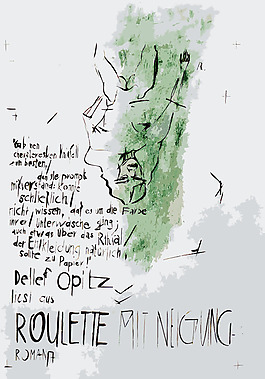 am besten,
da sie prompt
mißverstand: konnte
schließlich
nicht wissen, daß es um die Farbe
ihrer Unterwäsche ging;
auch etwas über das Ritual
der Entkleidung natürlich
sollte zu Papier!"
Detlef Opitz
liest aus
ROULETTE MIT NEIGUNG
ROMAN